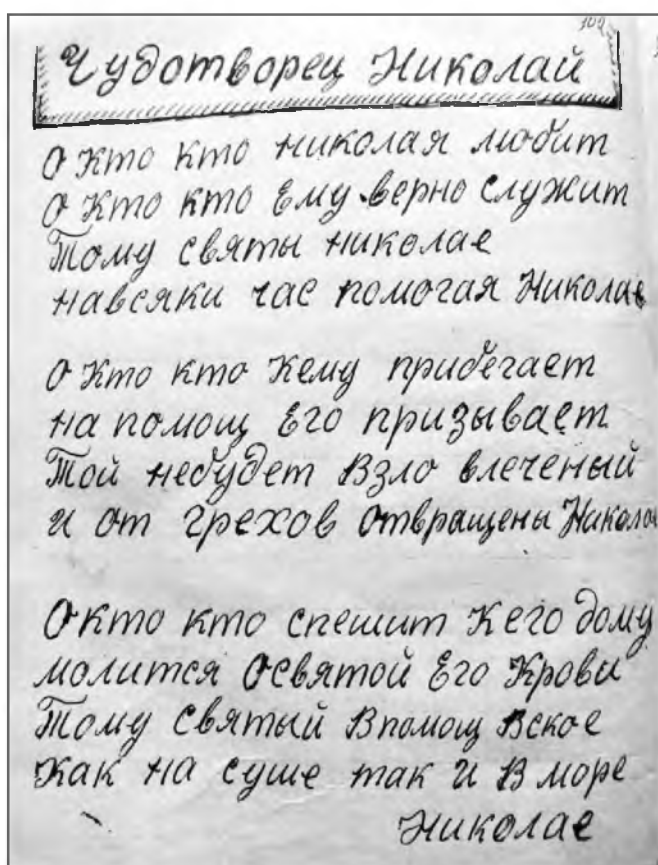 109
Чудотворец Николай
О Кто кто николая любит
О Кто кто Ему верно служит
Тому святы николае
навсяки час помогая Николае
О Кто кто Кему прибегает
на помощ Его призывает
Той небудет Взло влеченый
и от грехов отвращены
О кто кто спешит Кего дому
молится Освятой Его Крови
Тому святый Впомощ Вское
Как на суше так и В море
Николае